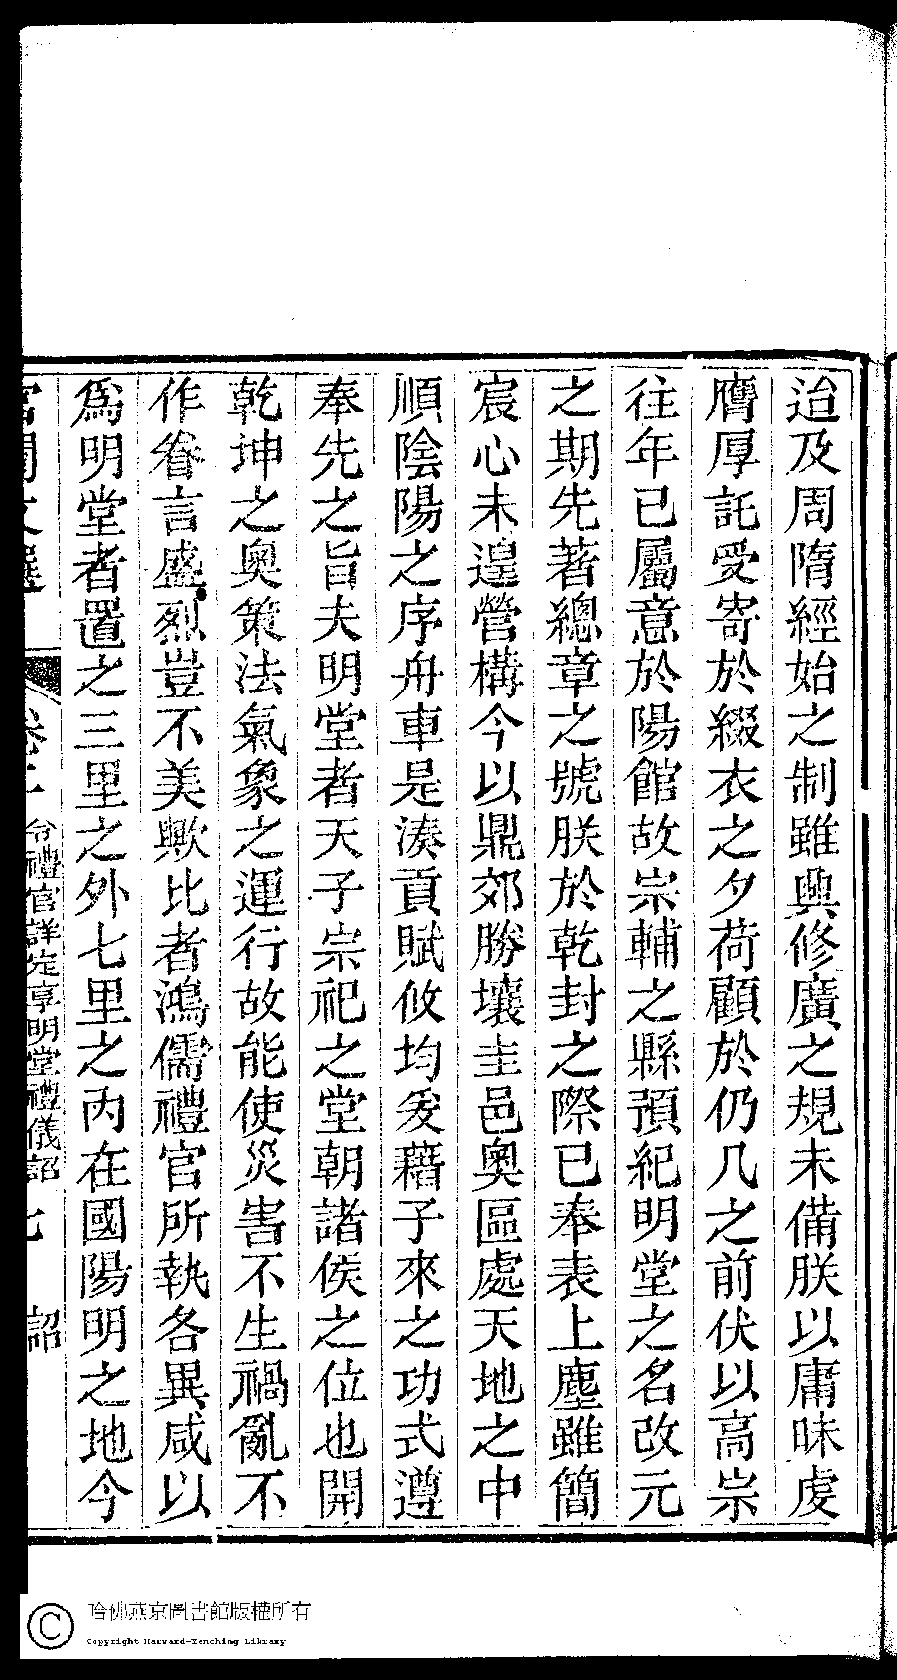 迨及周隋經始之制雖興修廣之規未備朕以庸昧虔
膺厚託受寄於綴衣之夕荷顧於仍几之前伏以高宗
往年已屬意於陽館故宗輔之縣預紀明堂之名改元
之期先著總章之號朕於乾封之際已奉表上塵雖簡
宸心未遑營構今以鼎郊勝壤圭邑奧區處天地之中
順陰陽之序舟車是湊貢賦攸均爰藉子來之功式遵
奉先之旨夫明堂者天子宗祀之堂朝諸侯之位也開
乾坤之奧策法氣象之運行故能使災害不生禍亂不
作眷言盛烈豈不美歟比者鴻儒禮官所執各異咸以
爲明堂者置之三里之外七里之內在國陽明之地今
宮閨文選 卷二 令禮官詳定享明堂禮儀詔 七 詔
哈佛燕京圖書館版權所有
Copyright Harvard-Yenching Library